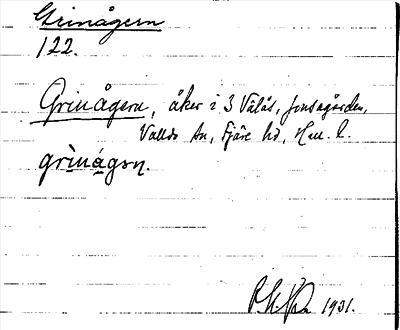 Grinågern
122.
Grinågern, åker i 3 Välås, Jonsagården,
Vallda sn, Fjäre hd, Hall. l.
grìnágɘrn.
1931.